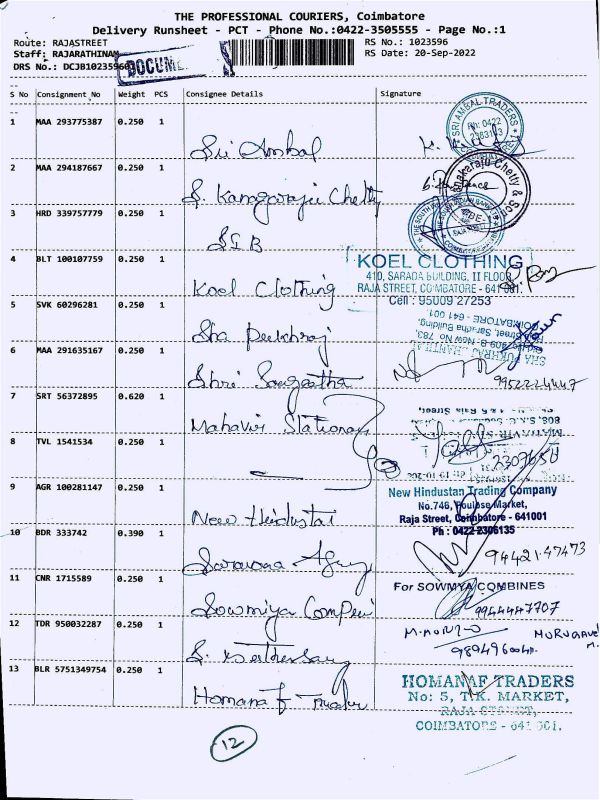 THE PROFESSIONAL COURIERS, Coimbatore
Delivery Runsheet - PCT - Phone No.:0422-3505555 - Page No.:1
Route: RAJASTREET RS No.: 1023596
Staff: RAJARATHINAM RS Date: 20-Sep-2022
DRS No.: DCJB102359603 DOCUME
S No Consignment_No Weight PCS Consignee Details Signature
1 MAA 293775387 0.250 1
SRI AMBAL TRADERS
Ph: 0422
2383113
COIMBATORE
Sri Ambal
2 MAA 294187667 0.250 1
Kanakaraju Chetty & Sons
S. Kanagaraju Chetty
3 HRD 339757779 0.250 1
THE SOUTH INDIAN BANK LTD
S I B
4 BLT 100107759 0.250 1
KOEL CLOTHING
410, SARADA BUILDING, II FLOOR,
RAJA STREET, COIMBATORE - 641 001.
Cell : 95009 27253
Koel Clothing
5 SVK 60296281 0.250 1
SHA PUKHRAJ
New No. 783,
Saradha Building,
COIMBATORE - 641 001.
Sha Pukhraj
6 MAA 291635167 0.250 1
Shri Sangeetha
9952224447
7 SRT 56372895 0.620 1
Mahavir Stationary
8 TVL 1541534 0.250 1
9 AGR 100281147 0.250 1
New Hindustan Trading Company
No.746, Poulose Market,
Raja Street, Coimbatore - 641001
Ph : 0422-2306135
New Hindustan
10 BDR 333742 0.390 1
94421.47473
Saravana Agency
11 CNR 1715589 0.250 1
For SOWMYA COMBINES
9944447707
Sowmiya Compeni
12 TDR 950032287 0.250 1
13 BLR 5751349754 0.250 1
HOMANAF TRADERS
No: 5, T.K. MARKET,
RAJA STREET,
COIMBATORE - 641 001.
Homanaf Trader
12